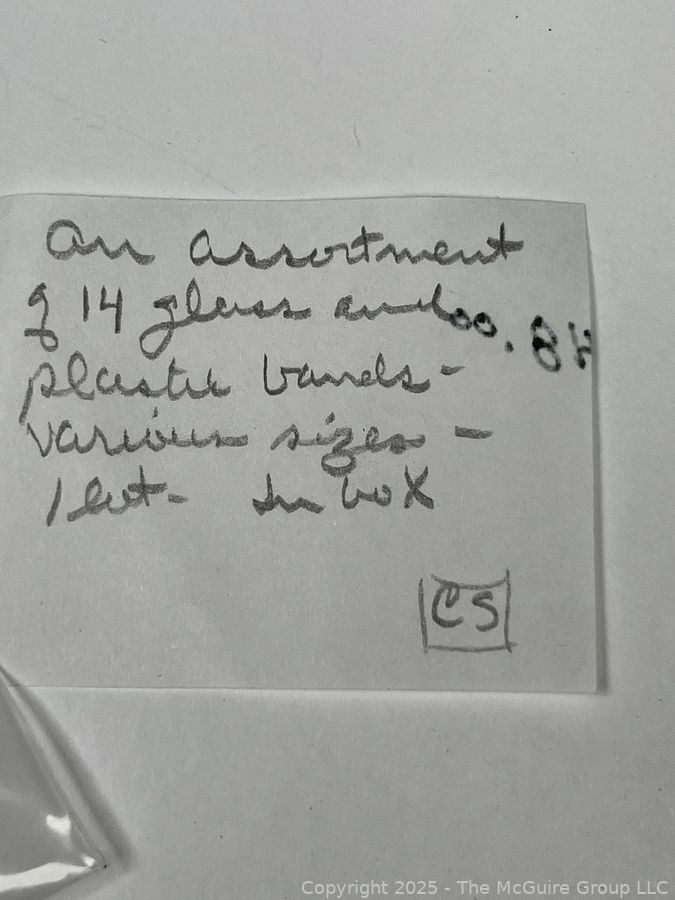 An assortment
of 14 glass and
plastic bands -
various sizes -
1 lot - In box
CS
Copyright 2025 - The McGuire Group LLC